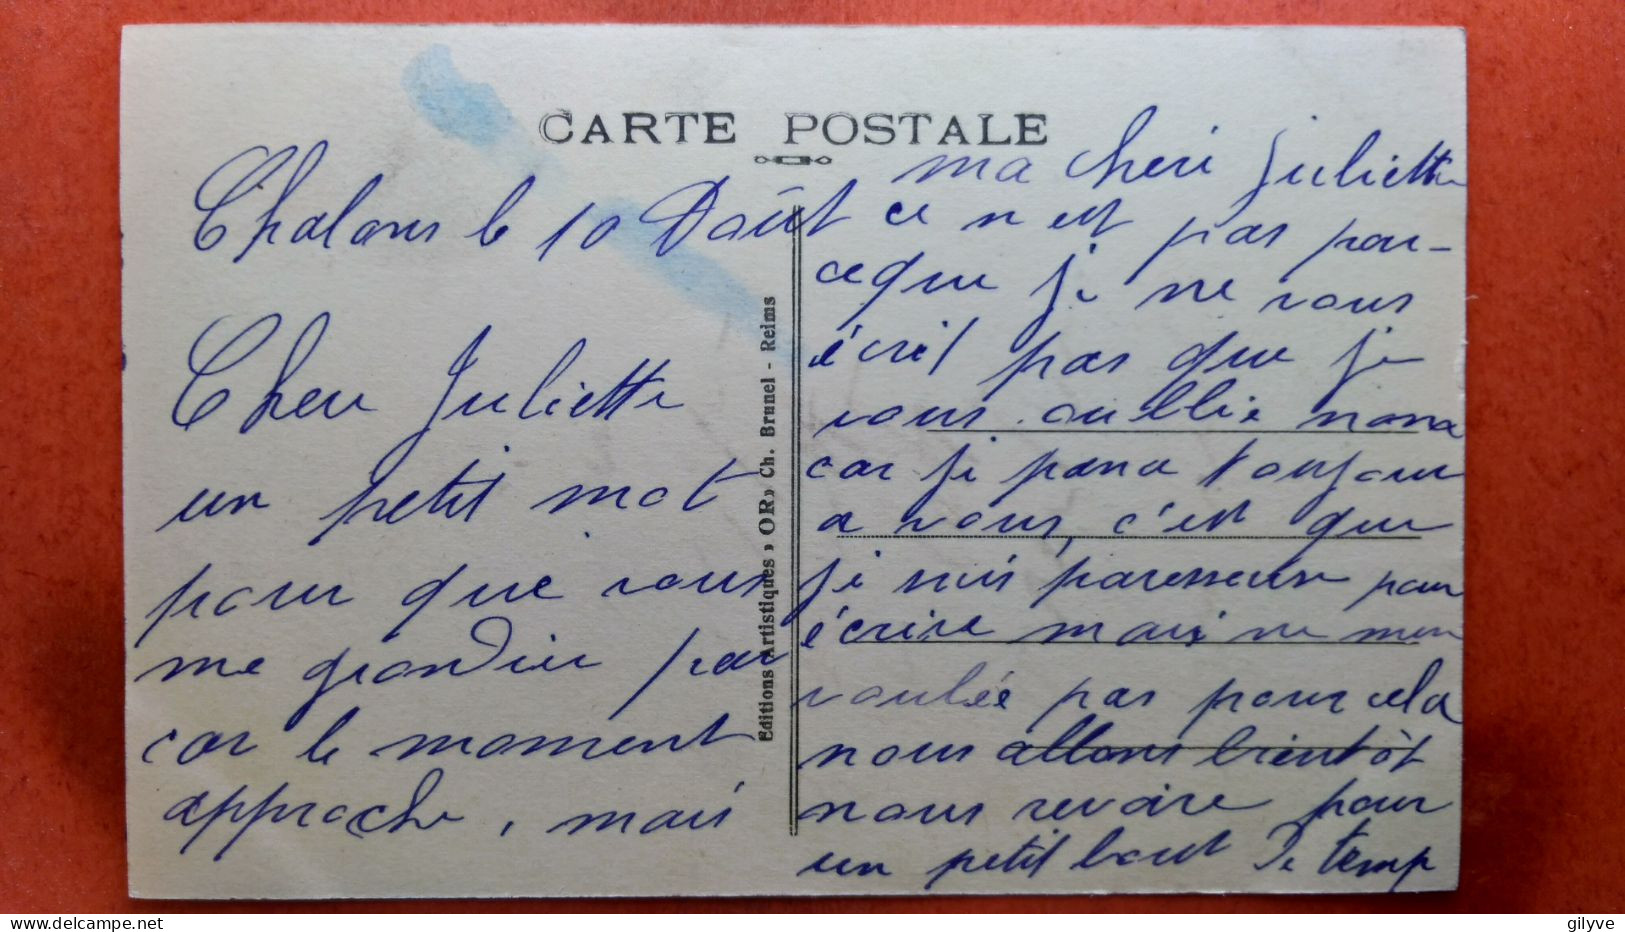 CARTE POSTALE
Chalons le 10 Août
Cher Juliette
un petit mot
pour que vous
me grondier par
car le moment
approche, mais
Editions Artistiques » OR » Ch. Brunel - Reims
ma cheri Juliette
ce n est pas par-
ceque je ne vous
écrit pas que je
vous oubllie nona
car je panse toujour
a vous, c'est que
je suis paresseux pour
écrire mais ne men
voulée pas pour cela
nous allons bientôt
nous revoire pour
un petit bout De temp
gilyve